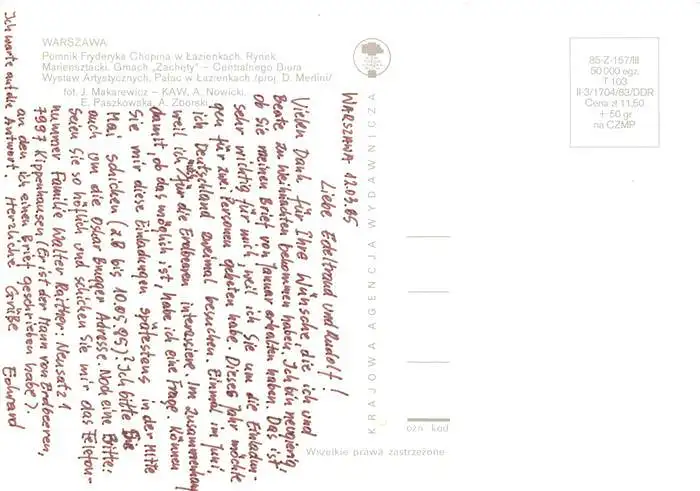 WARSZAWA
Pomnik Fryderyka Chopina w Łazienkach. Rynek
Mariensztacki. Gmach „Zachęty" – Centralnego Biura
Wystaw Artystycznych. Pałac w Łazienkach /proj. D. Merlini/
fot. J. Makarewicz – KAW, A. Nowicki,
E. Paszkowska, A. Zborski
85-Z-157/III
50 000 egz.
T 103
II-3/1704/83/DDR
Cena zł 11,50
+ 50 gr
na CZMP
KRAJOWA AGENCJA WYDAWNICZA
ozn. kod
Wszelkie prawa zastrzeżone
WARSZAWA 12.03.85
Liebe Edeltraud und Rudolf!
Vielen Dank für Ihre Wünsche, die ich und
Beate zu Weihnachten bekommen haben. Ich bin neugierig,
ob Sie meinen Brief von Januar erhalten haben. Das ist
sehr wichtig für mich, weil ich Sie um die Einladun-
gen für zwei Personen gebeten habe. Dieses Jahr möchte
ich Deutschland zweimal besuchen. Einmal im Juni,
weil ich mich für die Erdbeeren interessiere. Im Zusammenhang
damit, ob das möglich ist, habe ich eine Frage. Können
Sie mir diese Einladungen spätestens in der Mitte
Mai schicken (z.B. bis 10.05.85)? Ich bitte Sie
auch um die Oskar Brugger Adresse. Noch eine Bitte:
Seien Sie so höflich und schicken Sie mir das Telefon-
nummer Familie Walter Raither: Neusatz 1
7997 Kippenhausen (Er ist der Mann von Erdbeeren,
an den ich einen Brief geschrieben habe).
Ich warte auf die Antwort. Herzliche Grüße
Edward